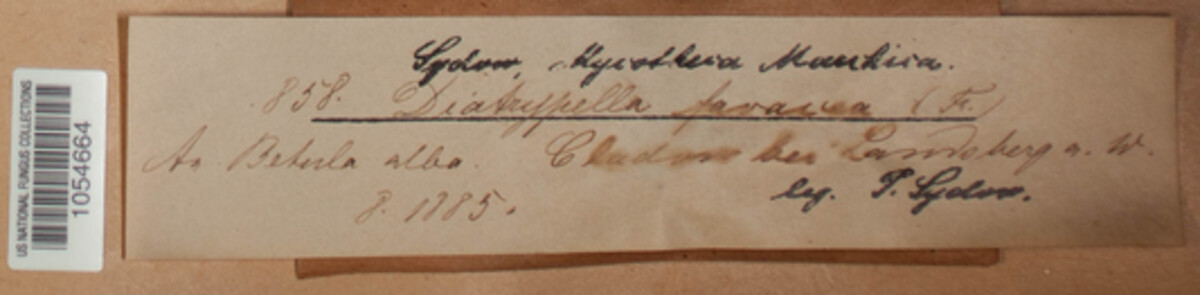 US NATIONAL FUNGUS COLLECTIONS
1054664
Sydow, Mycotheca Marchica.
858. Diatrypella favacea (Fr.)
An Betula alba. Cladow bei Landsberg a. W.
8. 1885.
leg. P. Sydow.